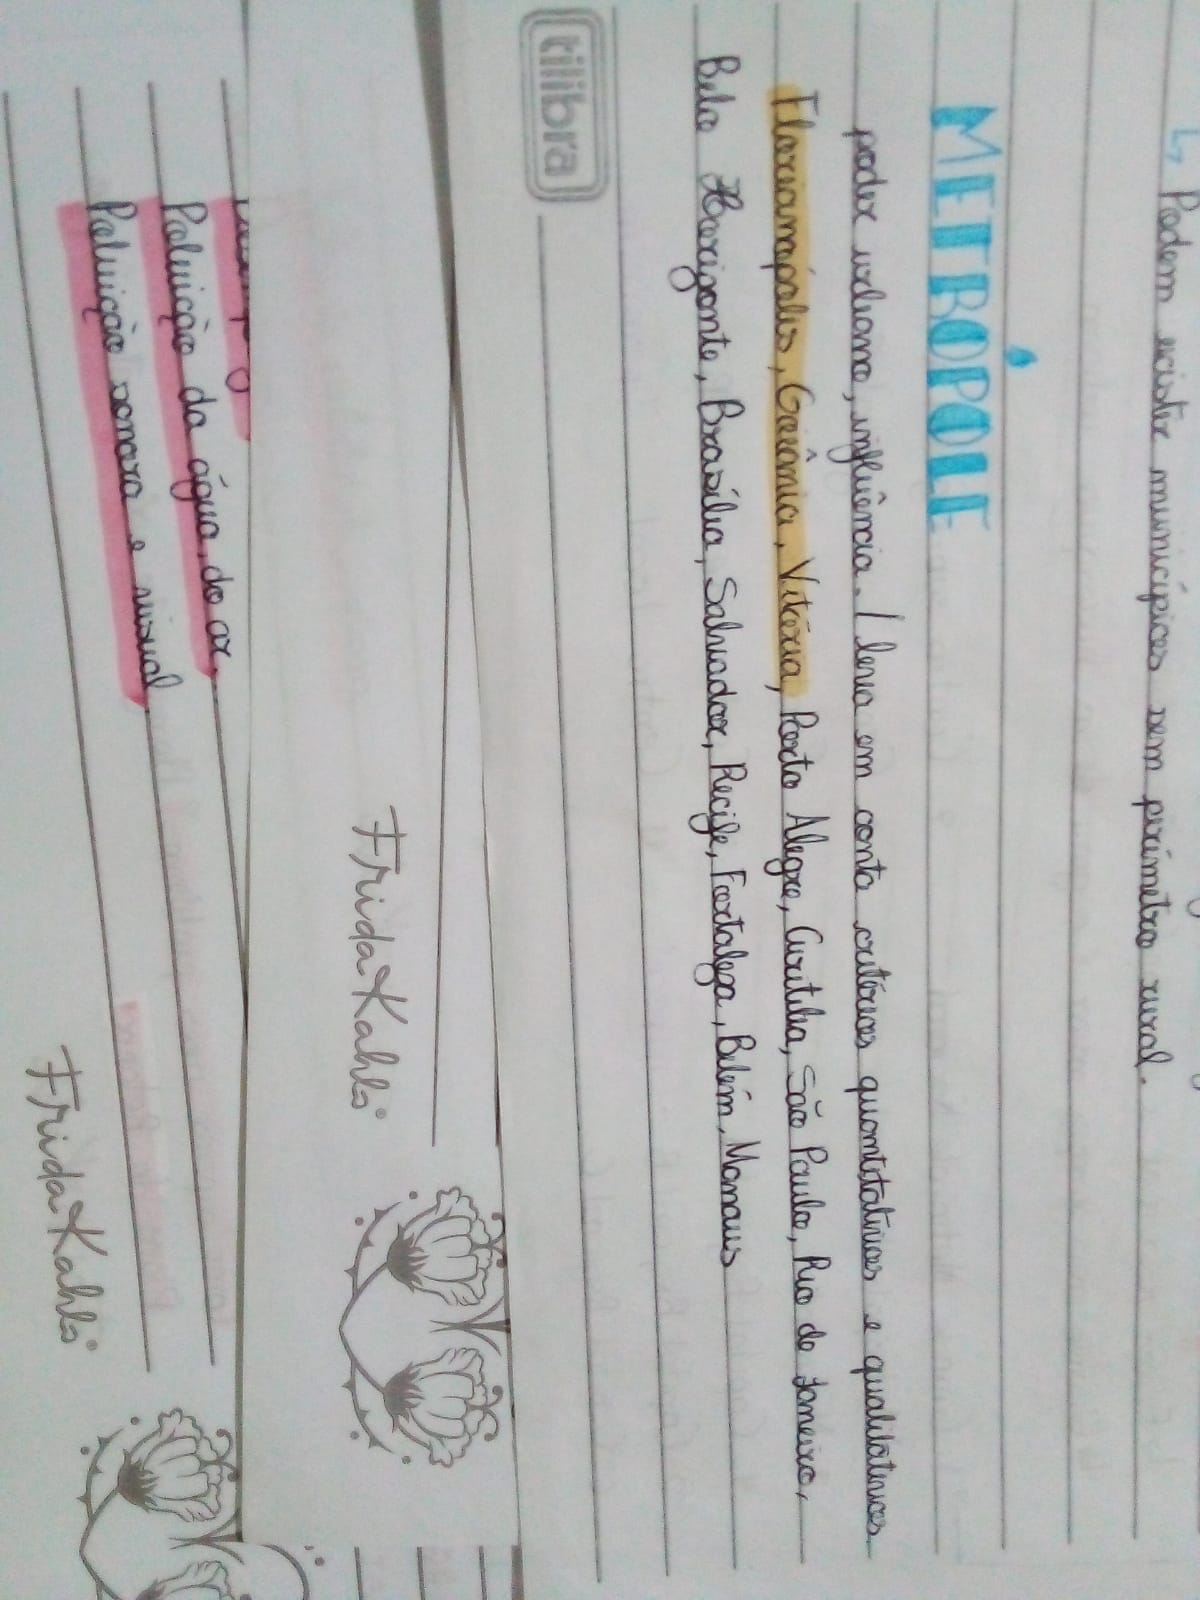 ↳ Podem existir municípios sem perímetro rural.
METRÓPOLE
poder urbano, influência. / leva em conta critérios quantitativos e qualitativos
Florianópolis, Goiânia, Vitória, Porto Alegre, Curitiba, São Paulo, Rio de Janeiro,
Belo Horizonte, Brasília, Salvador, Recife, Fortaleza, Belém, Manaus
tilibra
Frida Kahlo
Poluição da água, do ar.
Poluição sonora e visual.
Frida Kahlo